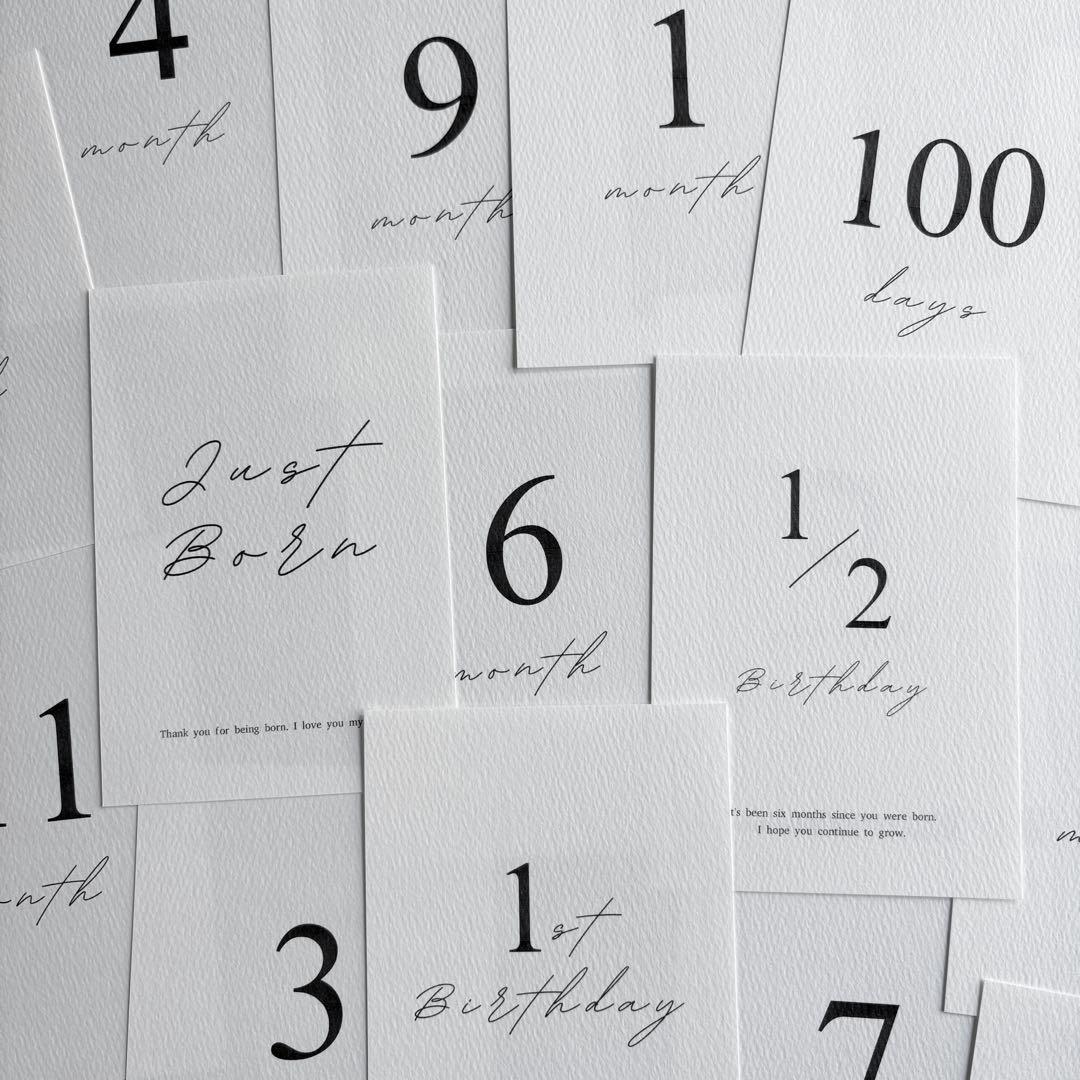 4
month
9
month
1
month
100
days
Just
Born
Thank you for being born. I love you my
6
month
1/2
Birthday
t's been six months since you were born.
I hope you continue to grow.
1
nth
3
1st
Birthday
7